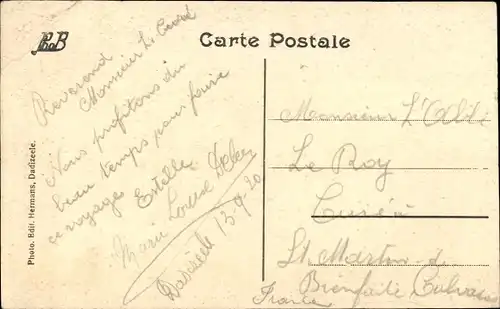 Carte Postale
Reverend
Monsieur L. Curé
Nous profitons du
beau temps pour faire
ce voyage
Estelle
Marie Louise
13-9-20
Photo. Edit. Hermans, Dadizeele.
Monsieur L'Abbé
Le Roy
Curé à
St Martin-d
Bienfaite Calvados
France